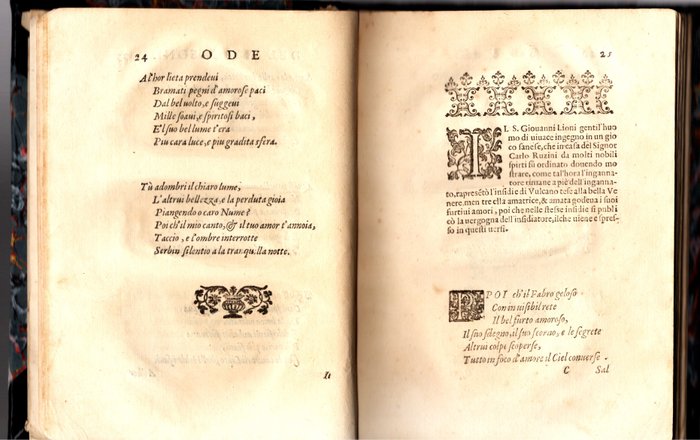 24 ODE
Al'hor lieta prendeui
Bramati pegni d'amorose paci
Dal bel uolto, e suggeui
Mille soaui, e spiritosi baci,
E'l suo bel lume t'era
Piu cara luce, e piu gradita sfera.
Tù adombri il chiaro lume,
L'altrui bellezza, e la perduta gioia
Piangendo o caro Nume?
Poi ch'il mio canto, & il tuo amor t'annoia,
Taccio, e l'ombre interrotte
Serbin silentio a la tranqu lla notte.
Il
25
IL S. Giouanni Lioni gentil'huo
mo di uiuace ingegno in un gio
co sanese, che in casa del Signor
Carlo Ruzini da molti nobili
spirti fu ordinato douendo mo
strare, come tal'hora l'inganna
tore rimane a piè dell'inganna
to, rapresētò l'insidie di Vulcano tese alla bella Ve
nere, men tre ella amatrice, & amata godeua i suoi
furtiui amori, poi che nelle stesse insidie si publi
cò la vergogna dell'insidiatore, ilche uiene espres-
so in questi uersi.
POI ch'il Fabro geloso
Con inuisibil rete
Il bel furto amoroso,
Il suo sdegno, il suo scorno, e le segrete
Altrui colpe scoperse,
Tutto in foco d'amore il Ciel conuerse.
C Sal